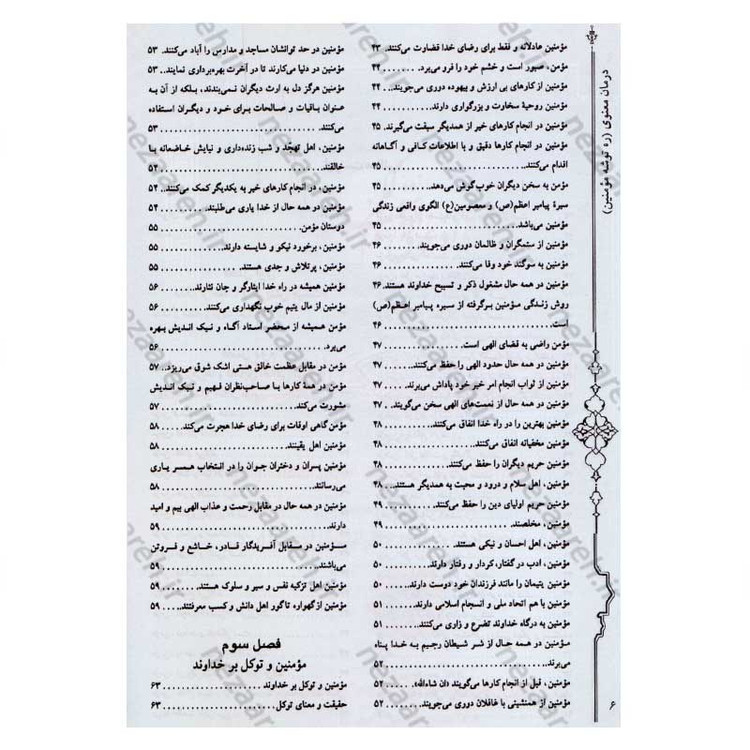 درمان معنوی (ره توشه مؤمنین)
مؤمنین عادلانه و فقط برای رضای خدا قضاوت می‌کنند. ۴۳
مؤمن، صبور است و خشم خود را فرو می‌برد. ۴۴
مؤمنین از کارهای بی ارزش و بیهوده دوری می‌جویند. ۴۴
مؤمنین روحیهٔ سخاوت و بزرگواری دارند. ۴۴
مؤمنین در انجام کارهای خیر از همدیگر سبقت می‌گیرند. ۴۵
مؤمنین در انجام کارها دقیق و با اطلاعات کافی و آگاهانه
اقدام می‌کنند. ۴۵
مؤمن به سخن دیگران خوب گوش می‌دهد. ۴۵
سیرهٔ پیامبر اعظم(ص) و معصومین(ع) الگوی واقعی زندگی
مؤمنین می‌باشد. ۴۵
مؤمنین از ستمگران و ظالمان دوری می‌جویند. ۴۶
مؤمنین به سوگند خود وفا می‌کنند. ۴۶
مؤمنین در همه حال مشغول ذکر و تسبیح خداوند هستند. ۴۶
روش زندگی مؤمنین برگرفته از سیره پیامبر اعظم(ص)
است. ۴۶
مؤمن راضی به قضای الهی است. ۴۷
مؤمنین در همه حال حدود الهی را حفظ می‌کنند. ۴۷
مؤمنین از ثواب انجام امر خیر خود پاداش می‌برند. ۴۷
مؤمنین در همه حال از نعمت‌های الهی سخن می‌گویند. ۴۷
مؤمنین بهترین را در راه خدا انفاق می‌کنند. ۴۸
مؤمنین مخفیانه انفاق می‌کنند. ۴۸
مؤمنین حریم دیگران را حفظ می‌کنند. ۴۸
مؤمنین، اهل سلام و درود و محبت به همدیگر هستند. ۴۸
مؤمنین حریم اولیای دین را حفظ می‌کنند. ۴۹
مؤمنین، مخلصند. ۴۹
مؤمنین، اهل احسان و نیکی هستند. ۵۰
مؤمنین، ادب در گفتار، کردار و رفتار دارند. ۵۰
مؤمنین یتیمان را مانند فرزندان خود دوست دارند. ۵۰
مؤمنین با هم اتحاد ملی و انسجام اسلامی دارند. ۵۱
مؤمنین به درگاه خداوند تضرع و زاری می‌کنند. ۵۱
مؤمنین در همه حال از شر شیطان رجیم به خدا پناه
می‌برند. ۵۲
مؤمنین، قبل از انجام کارها می‌گویند «ان شاءالله». ۵۲
مؤمنین از همنشینی با غافلان دوری می‌جویند. ۵۲
مؤمنین در حد توانشان مساجد و مدارس را آباد می‌کنند. ۵۳
مؤمنین در دنیا می‌کارند تا در آخرت بهره‌برداری نمایند. ۵۳
مؤمنین هرگز دل به ارث دیگران نمی‌بندند، بلکه از آن به
عنوان باقیات و صالحات برای خود و دیگران استفاده
می‌کنند. ۵۳
مؤمنین، اهل تهجّد و شب زنده‌داری و نیایش خاضعانه با
خالقند. ۵۴
مؤمنین، در انجام کارهای خیر به یکدیگر کمک می‌کنند. ۵۴
مؤمنین در همه حال از خدا یاری می‌طلبند. ۵۴
دوستان مؤمن. ۵۵
مؤمنین، برخورد نیکو و شایسته دارند. ۵۵
مؤمنین، پرتلاش و جدی هستند. ۵۵
مؤمنین همیشه در راه خدا ایثارگر و جان نثارند. ۵۶
مؤمنین از مال یتیم خوب نگهداری می‌کنند. ۵۶
مؤمن همیشه از محضر استاد آگاه و نیک اندیش بهره
می‌برد. ۵۶
مؤمن در مقابل عظمت خالق هستی اشک شوق می‌ریزد. ۵۷
مؤمن در همهٔ کارها با صاحب‌نظران فهیم و نیک اندیش
مشورت می‌کند. ۵۷
مؤمن گاهی اوقات برای رضای خدا هجرت می‌کند. ۵۸
مؤمنین اهل یقینند. ۵۸
مؤمنین پسران و دختران جوان را در انتخاب همسر یاری
می‌رسانند. ۵۸
مؤمنین در همه حال در مقابل رحمت و عذاب الهی بیم و امید
دارند. ۵۹
مؤمنین در مقابل آفریدگار قادر، خاشع و فروتن
می‌باشند. ۵۹
مؤمنین اهل تزکیه نفس و سیر و سلوک هستند. ۵۹
مؤمنین از گهواره تا گور اهل دانش و کسب معرفتند. ۵۹
فصل سوم
مؤمنین و توکل بر خداوند
مؤمنین و توکل بر خداوند ۶۳
حقیقت و معنای توکل. ۶۳
۶
nezaareh.ir